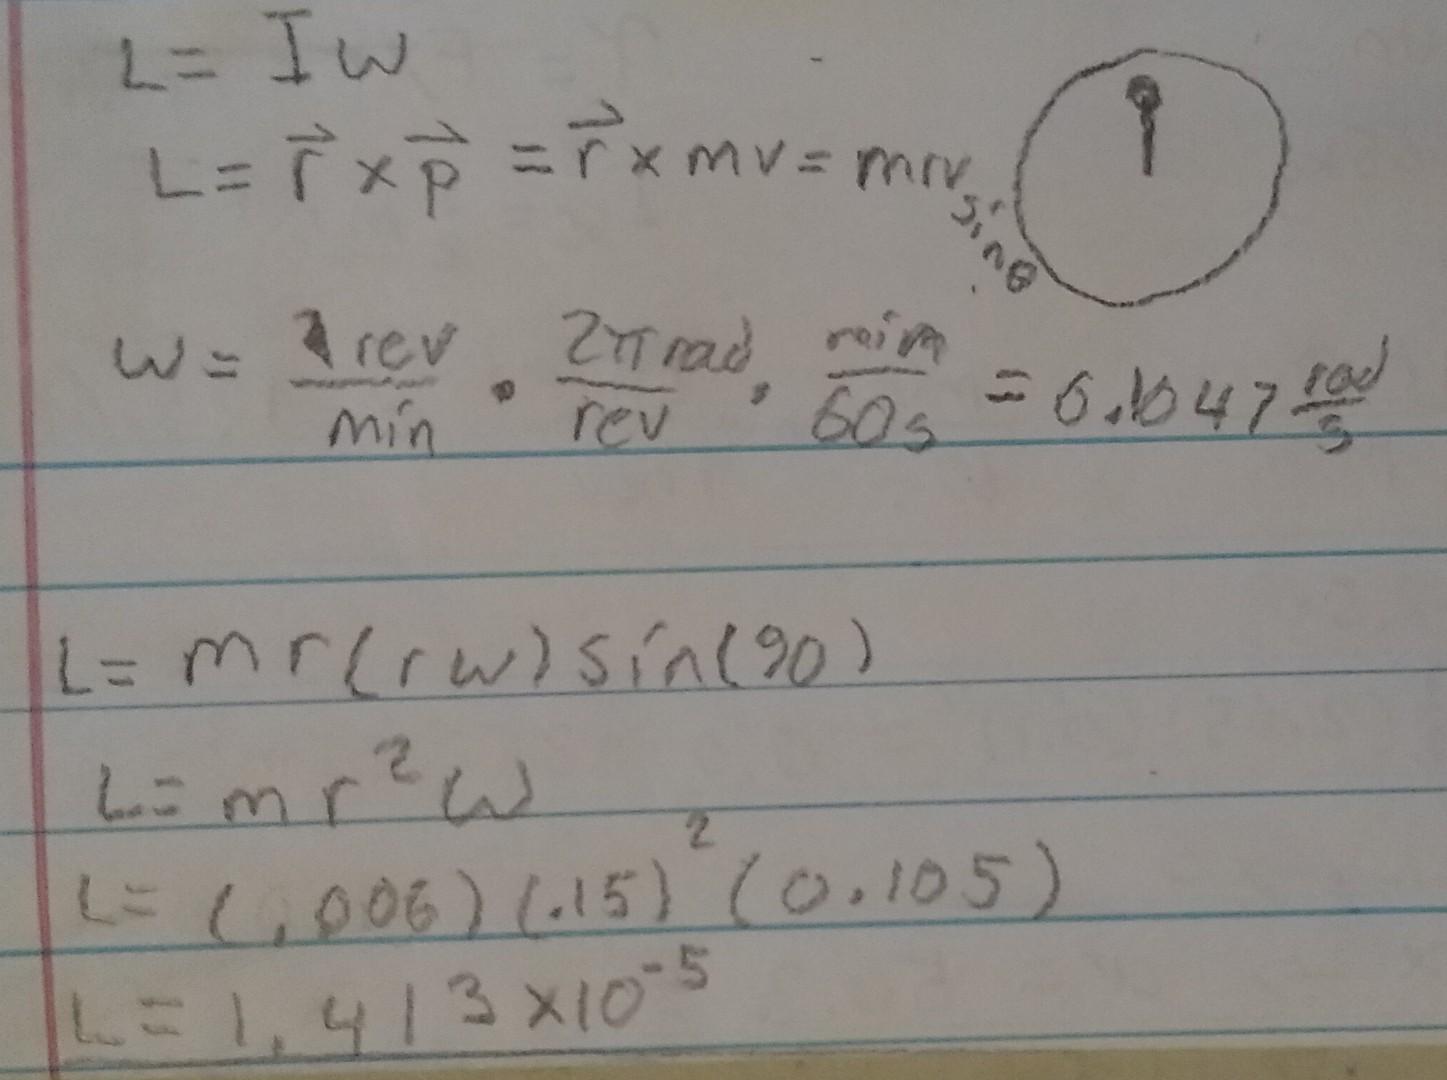 L = Iω
L = r⃗ × p⃗ = r⃗ × mv = mrv sinθ
ω = 1 rev/min · 2π rad/rev · min/60s = 0.1047 rad/s
L = mr(rω) sin(90)
L = mr²ω
L = (.006)(.15)²(0.105)
L = 1.413 × 10⁻⁵